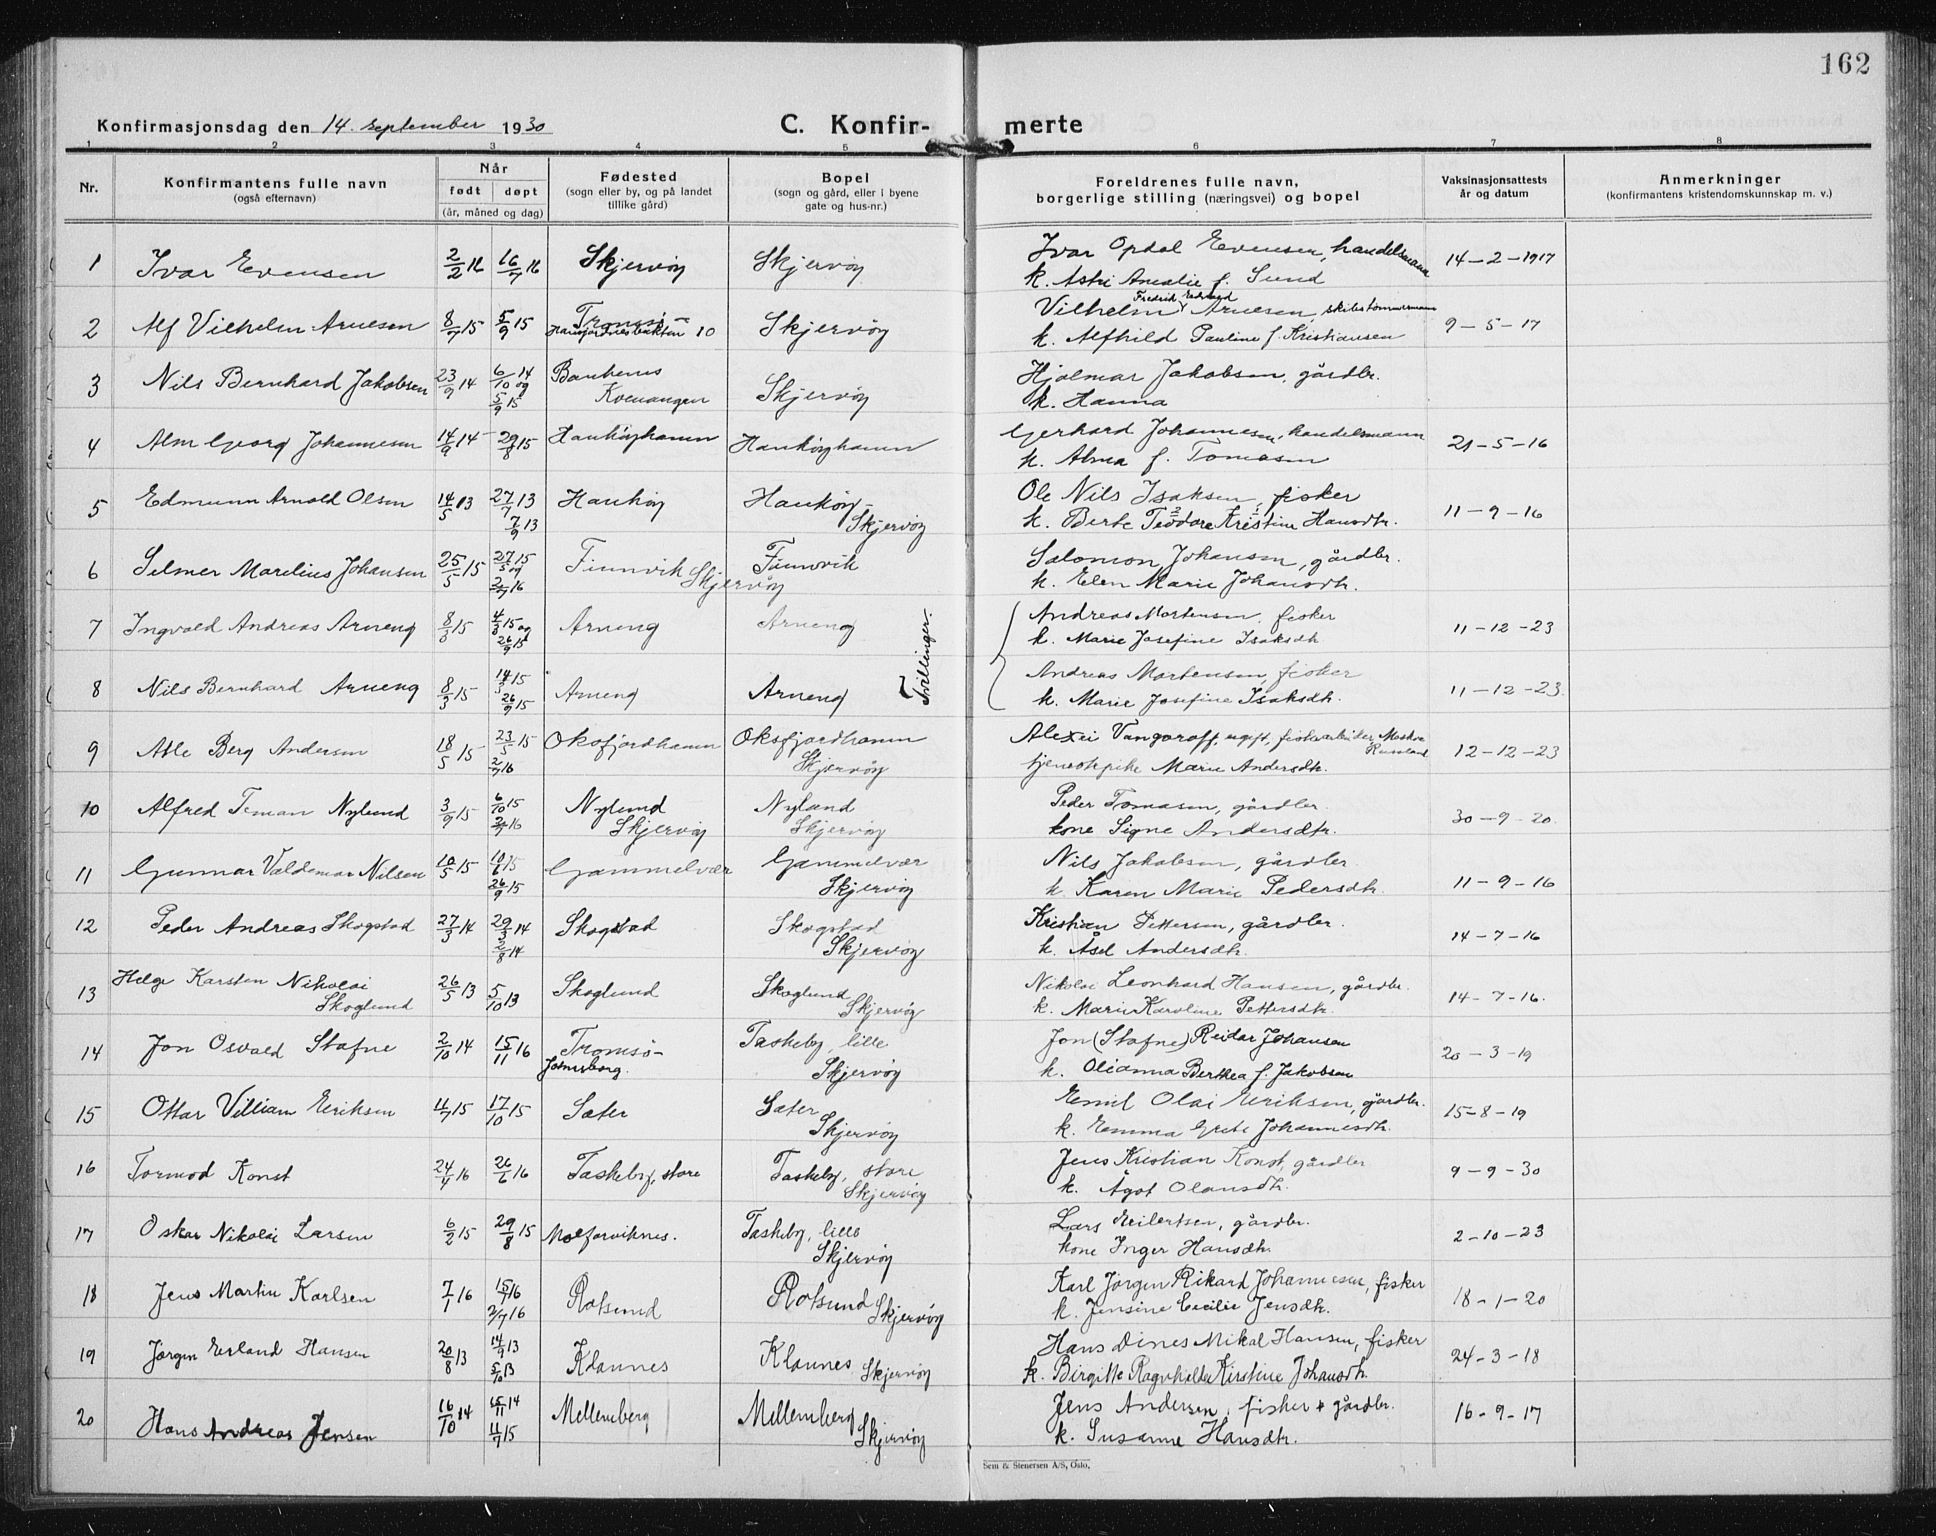 162
Konfirmasjonsdag den 14. september 1930
C. Konfir- merte
1 2 3 4 5 6 7 8
Nr.
Konfirmantens fulle navn
(også efternavn)
Når
født døpt
(år, måned og dag)
Fødested
(sogn eller by, og på landet
tillike gård)
Bopel
(sogn og gård, eller i byene
gate og hus-nr.)
Foreldrenes fulle navn,
borgerlige stilling (næringsvei) og bopel
Vaksinasjonsattests
år og datum
Anmerkninger
(konfirmantens kristendomskunnskap m. v.)
1 Ivar Evensen 2/2 16 16/7 16 Skjervøy Skjervøy Ivar Opdal Evensen, handelsmann 14-2-1917
k. Astri Amalie f. Sund
2 Alf Vilhelm Arnesen 8/7 15 5/9 15 Tromsø Skjervøy Vilhelm Fredrik Arnesen, skibstømmermann 9-5-17
10 k. Alfhild Pauline f. Kristiansen
3 Nils Bernhard Jakobsen 23/9 14 6/10 14 og Skjervøy Hjalmar Jakobsen, gårdbr.
5/9 15 Kvenangen k. Hanna
4 Alm Georg Johannesen 14/9 14 29/8 15 Haukøyhamn Haukøyhamn Gerhard Johannesen, handelsmann 21-5-16
k. Alma f. Tomasen
5 Edmunn Arnold Olsen 14/5 13 27/7 13 Haukøy Haukøy- Ole Nils Isaksen, fisker 11-9-16
7/9 13 Skjervøy k. Berte Teodore Kristine Hansdtr.
6 Selmer Marelius Johansen 25/5 15 27/5 15 og Finnvik Finnvik Salomon Johansen, gårdbr.
2/7 16 Skjervøy k. Elen Marie Johansdtr.
7 Ingvald Andreas Arneng 8/3 15 4/3 15 og Arneng Arneng Andreas Mortensen, fisker 11-12-23
26/9 15 k. Marie Josefine Isaksdtr.
Tvillinger.
8 Nils Bernhard Arneng 8/3 15 14/3 15 Arneng Arneng Andreas Mortensen, fisker 11-12-23
26/9 15 k. Marie Josefine Isaksdtr.
9 Atle Berg Andersen 18/5 15 23/5 15 Oksfjordhamn Oksfjordhamn Alexei Vangaroff, ugift, fiskearbeider, Moskva Russland 12-12-23
2/7 16 Skjervøy tjenestepike Marie Andersdtr.
10 Alfred Teman Nylund 3/9 15 6/10 15 Nylund Nylund Peder Tomasen, gårdbr. 30-9-20
2/7 16 Skjervøy Skjervøy kone Signe Andersdtr.
11 Gunnar Valdemar Nilsen 10/5 15 10/6 15 Gammelvær Gammelvær Nils Jakobsen, gårdbr. 11-9-16
26/9 15 Skjervøy k. Karen Marie Pedersdtr.
12 Peder Andreas Skogstad 27/3 14 29/3 14 Skogstad Skogstad Kristian Pettersen, gårdbr. 14-7-16
2/8 14 Skjervøy k. Åsel Andersdtr.
13 Helge Karsten Nikolai 26/5 13 5/10 13 Skoglund Skoglund Nikolai Leonhard Hansen, gårdbr. 14-7-16.
Skoglund Skjervøy k. Marie Karoline Pettersdtr.
14 Jon Osvald Stafne 2/10 14 15/11 16 Tromsø- Taskeby, lille Jon (Stafne) Reidar Johansen 20-3-19
Skjervøy k. Olianna Berthea f. Jakobsen
15 Ottar Villiam Eriksen 4/7 15 17/10 15 Sæter Sæter Emil Olai Eriksen, gårdbr. 15-8-19
Skjervøy k. Emma Grete Johannesdtr.
16 Tormod Konst 24/4 16 26/6 16 Taskeby, store Taskeby, store Jens Kristian Konst, gårdbr 9-9-30
Skjervøy k. Ågot Olausdtr.
17 Oskar Nikolai Larsen 6/2 15 29/8 15 Taskeby, lille Lars Eilertsen, gårdbr. 2-10-23
Skjervøy kone Inger Hansdtr.
18 Jens Martin Karlsen 7/1 16 15/1 16 Rotsund Rotsund Karl Jørgen Rikard Johannesen, fisker 18-1-20
2/7 16 Skjervøy k. Jensine Cecilie Jensdtr.
19 Jørgen Erland Hansen 20/8 13 14/9 13 Klaunes Klaunes Hans Dines Mikal Hansen, fisker 24-3-18
5/10 13 Skjervøy k. Birgitte Ragnhilda Kirstine Johansdtr.
20 Hans Andreas Jensen 16/10 14 15/11 14 Mellemberg Mellemberg Jens Andersen, fisker & gårdbr. 16-9-17
4/7 15 Skjervøy k. Susanne Hansdtr.
Sem & Stenersen A/S, Oslo.